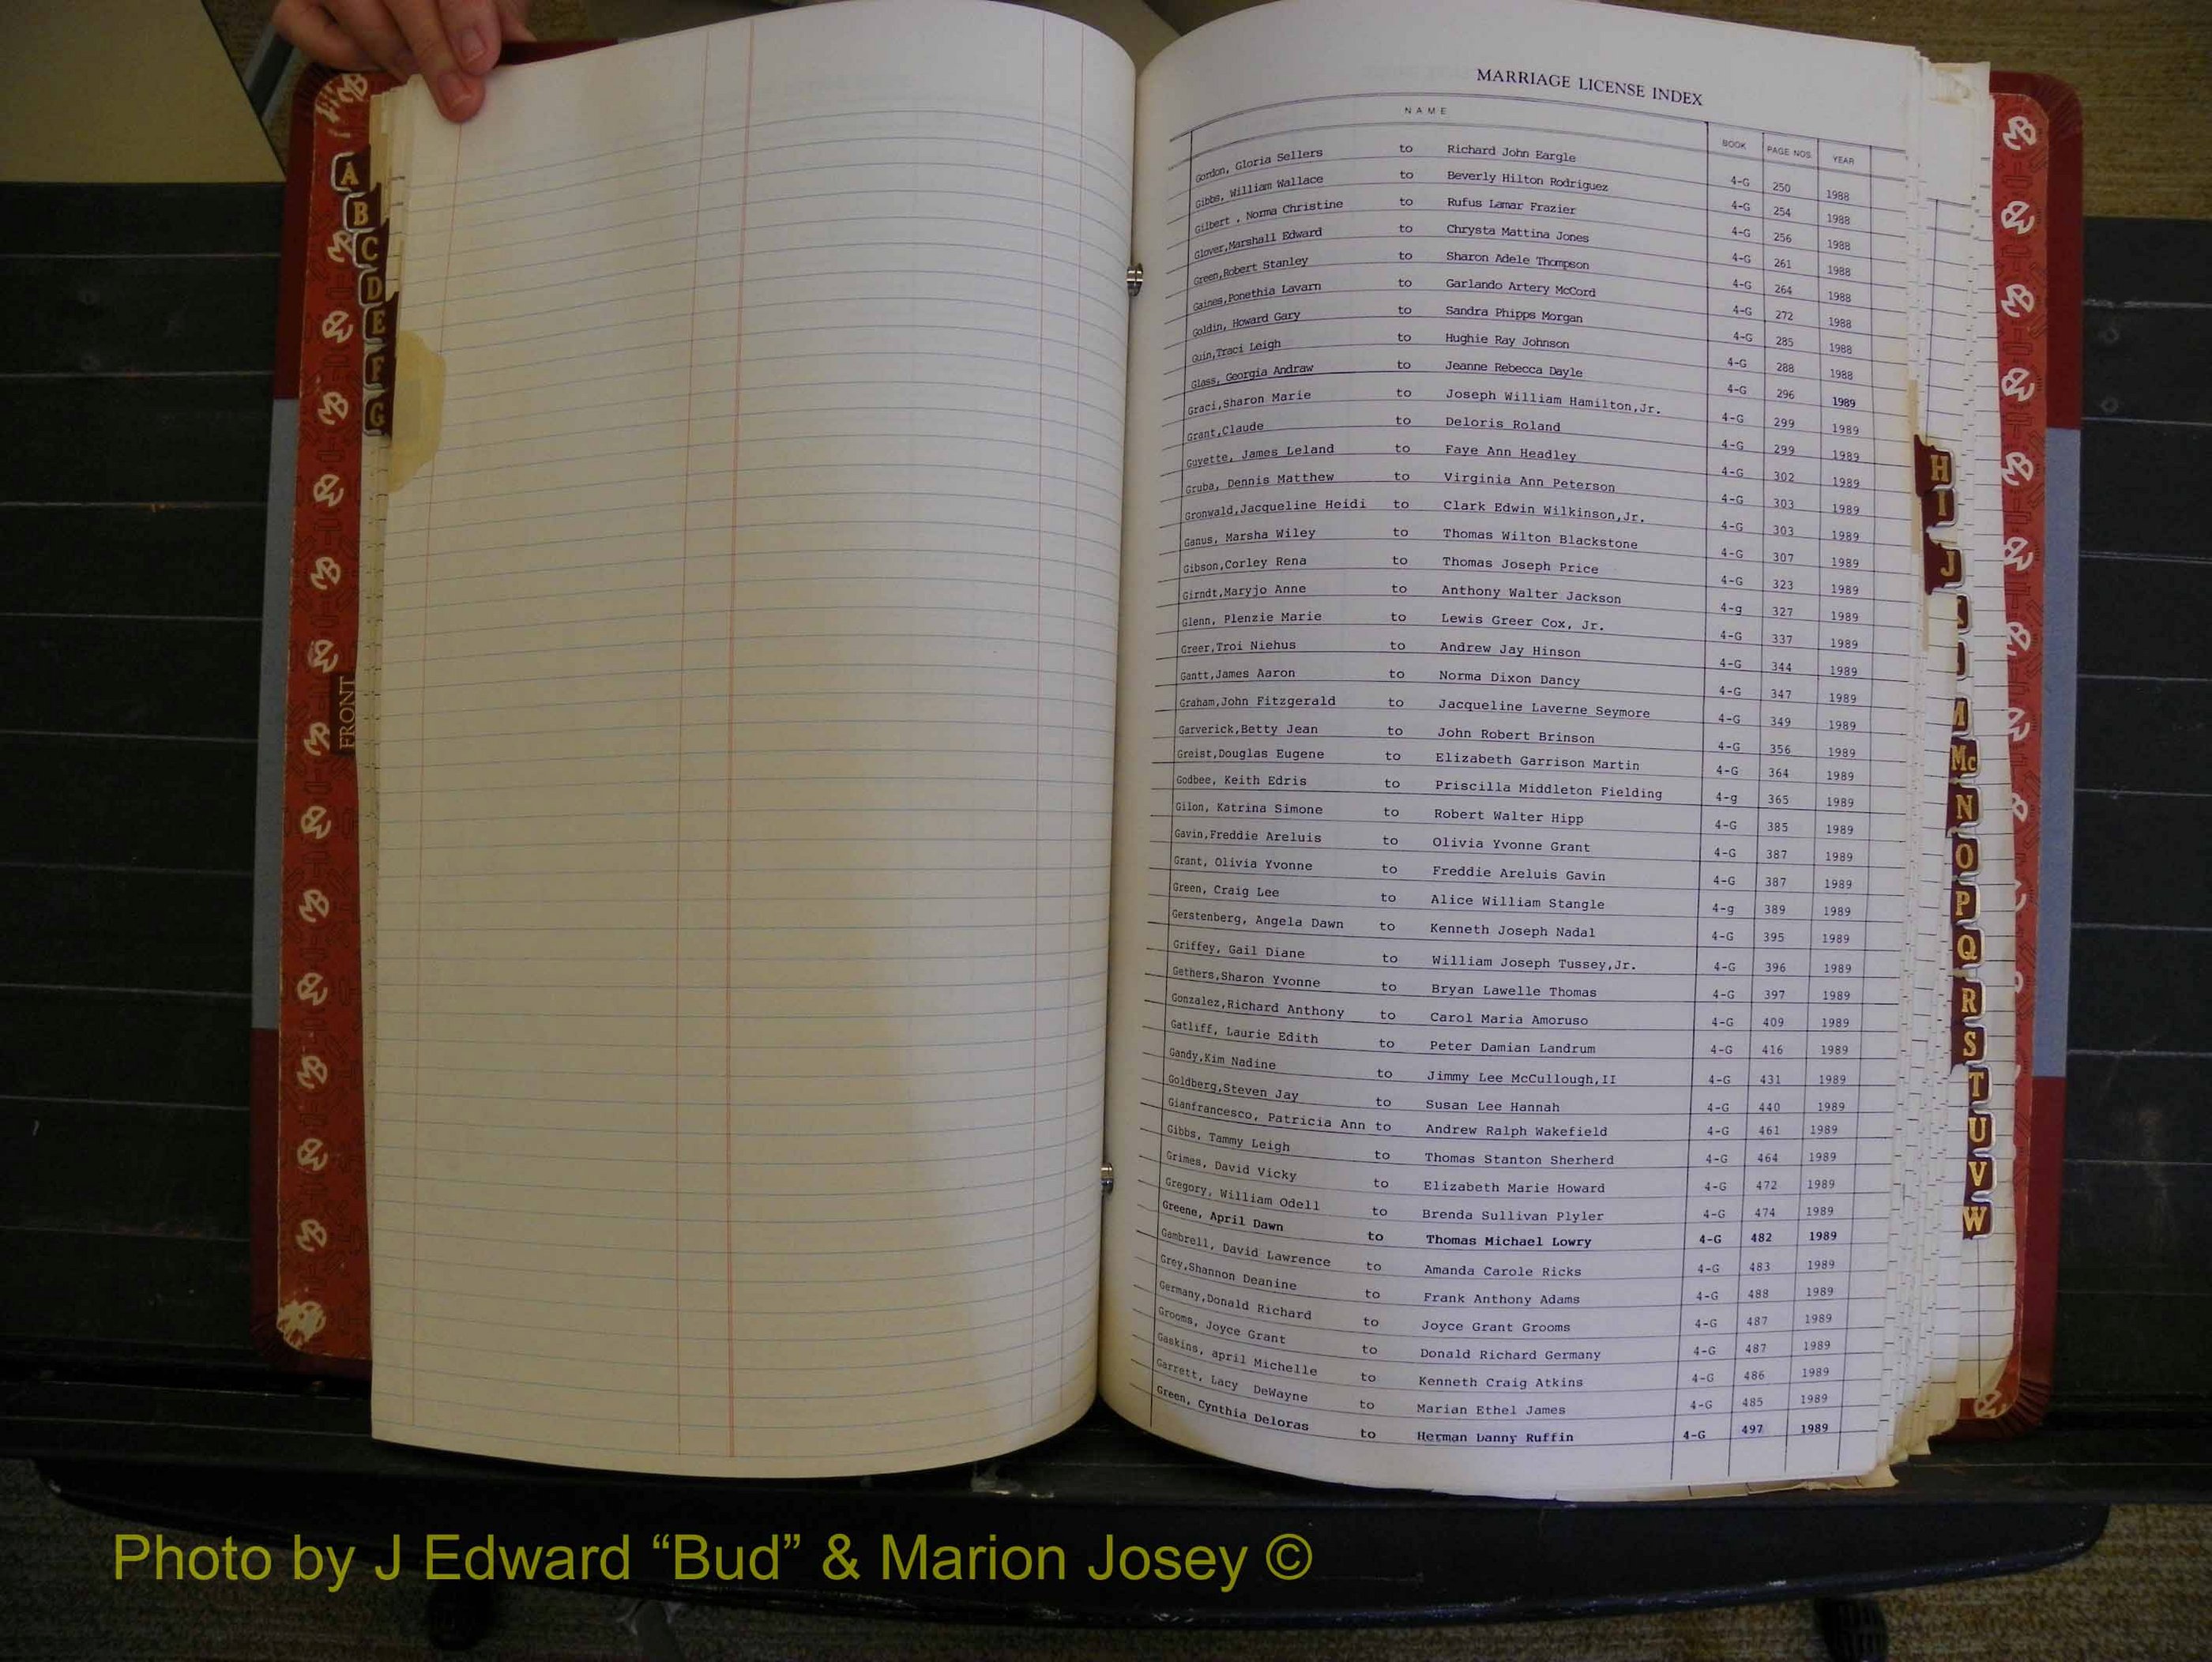 A
B
C
D
E
F
G
FRONT
MARRIAGE LICENSE INDEX
NAME BOOK PAGE NOS. YEAR
Gordon, Gloria Sellers to Richard John Eargle 4-G 250 1988
Gibbs, William Wallace to Beverly Hilton Rodriguez 4-G 254 1988
Gilbert , Norma Christine to Rufus Lamar Frazier 4-G 256 1988
Glover,Marshall Edward to Chrysta Mattina Jones 4-G 261 1988
Green,Robert Stanley to Sharon Adele Thompson 4-G 264 1988
Gaines,Ponethia Lavarn to Garlando Artery McCord 4-G 272 1988
Goldin, Howard Gary to Sandra Phipps Morgan 4-G 285 1988
Guin,Traci Leigh to Hughie Ray Johnson 4-G 288 1988
Glass, Georgia Andraw to Jeanne Rebecca Dayle 4-G 296 1989
Graci,Sharon Marie to Joseph William Hamilton,Jr. 4-G 299 1989
Grant,Claude to Deloris Roland 4-G 299 1989
Guyette, James Leland to Faye Ann Headley 4-G 302 1989
Gruba, Dennis Matthew to Virginia Ann Peterson 4-G 303 1989
Gronwald,Jacqueline Heidi to Clark Edwin Wilkinson,Jr. 4-G 303 1989
Ganus, Marsha Wiley to Thomas Wilton Blackstone 4-G 307 1989
Gibson,Corley Rena to Thomas Joseph Price 4-G 323 1989
Girndt,Maryjo Anne to Anthony Walter Jackson 4-g 327 1989
Glenn, Plenzie Marie to Lewis Greer Cox, Jr. 4-G 337 1989
Greer,Troi Niehus to Andrew Jay Hinson 4-G 344 1989
Gantt,James Aaron to Norma Dixon Dancy 4-G 347 1989
Graham,John Fitzgerald to Jacqueline Laverne Seymore 4-G 349 1989
Garverick,Betty Jean to John Robert Brinson 4-G 356 1989
Greist,Douglas Eugene to Elizabeth Garrison Martin 4-G 364 1989
Godbee, Keith Edris to Priscilla Middleton Fielding 4-g 365 1989
Gilon, Katrina Simone to Robert Walter Hipp 4-G 385 1989
Gavin,Freddie Areluis to Olivia Yvonne Grant 4-G 387 1989
Grant, Olivia Yvonne to Freddie Areluis Gavin 4-G 387 1989
Green, Craig Lee to Alice William Stangle 4-g 389 1989
Gerstenberg, Angela Dawn to Kenneth Joseph Nadal 4-G 395 1989
Griffey, Gail Diane to William Joseph Tussey,Jr. 4-G 396 1989
Gethers,Sharon Yvonne to Bryan Lawelle Thomas 4-G 397 1989
Gonzalez,Richard Anthony to Carol Maria Amoruso 4-G 409 1989
Gatliff, Laurie Edith to Peter Damian Landrum 4-G 416 1989
Gandy,Kim Nadine to Jimmy Lee McCullough,II 4-G 431 1989
Goldberg,Steven Jay to Susan Lee Hannah 4-G 440 1989
Gianfrancesco, Patricia Ann to Andrew Ralph Wakefield 4-G 461 1989
Gibbs, Tammy Leigh to Thomas Stanton Sherherd 4-G 464 1989
Grimes, David Vicky to Elizabeth Marie Howard 4-G 472 1989
Gregory, William Odell to Brenda Sullivan Plyler 4-G 474 1989
Greene, April Dawn to Thomas Michael Lowry 4-G 482 1989
Gambrell, David Lawrence to Amanda Carole Ricks 4-G 483 1989
Grey,Shannon Deanine to Frank Anthony Adams 4-G 488 1989
Germany,Donald Richard to Joyce Grant Grooms 4-G 487 1989
Grooms, Joyce Grant to Donald Richard Germany 4-G 487 1989
Gaskins, april Michelle to Kenneth Craig Atkins 4-G 486 1989
Garrett, Lacy DeWayne to Marian Ethel James 4-G 485 1989
Green, Cynthia Deloras to Herman Danny Ruffin 4-G 497 1989
H
I
J
M
Mc
N
O
P
Q
R
S
T
U
V
W
Photo by J Edward “Bud” & Marion Josey ©